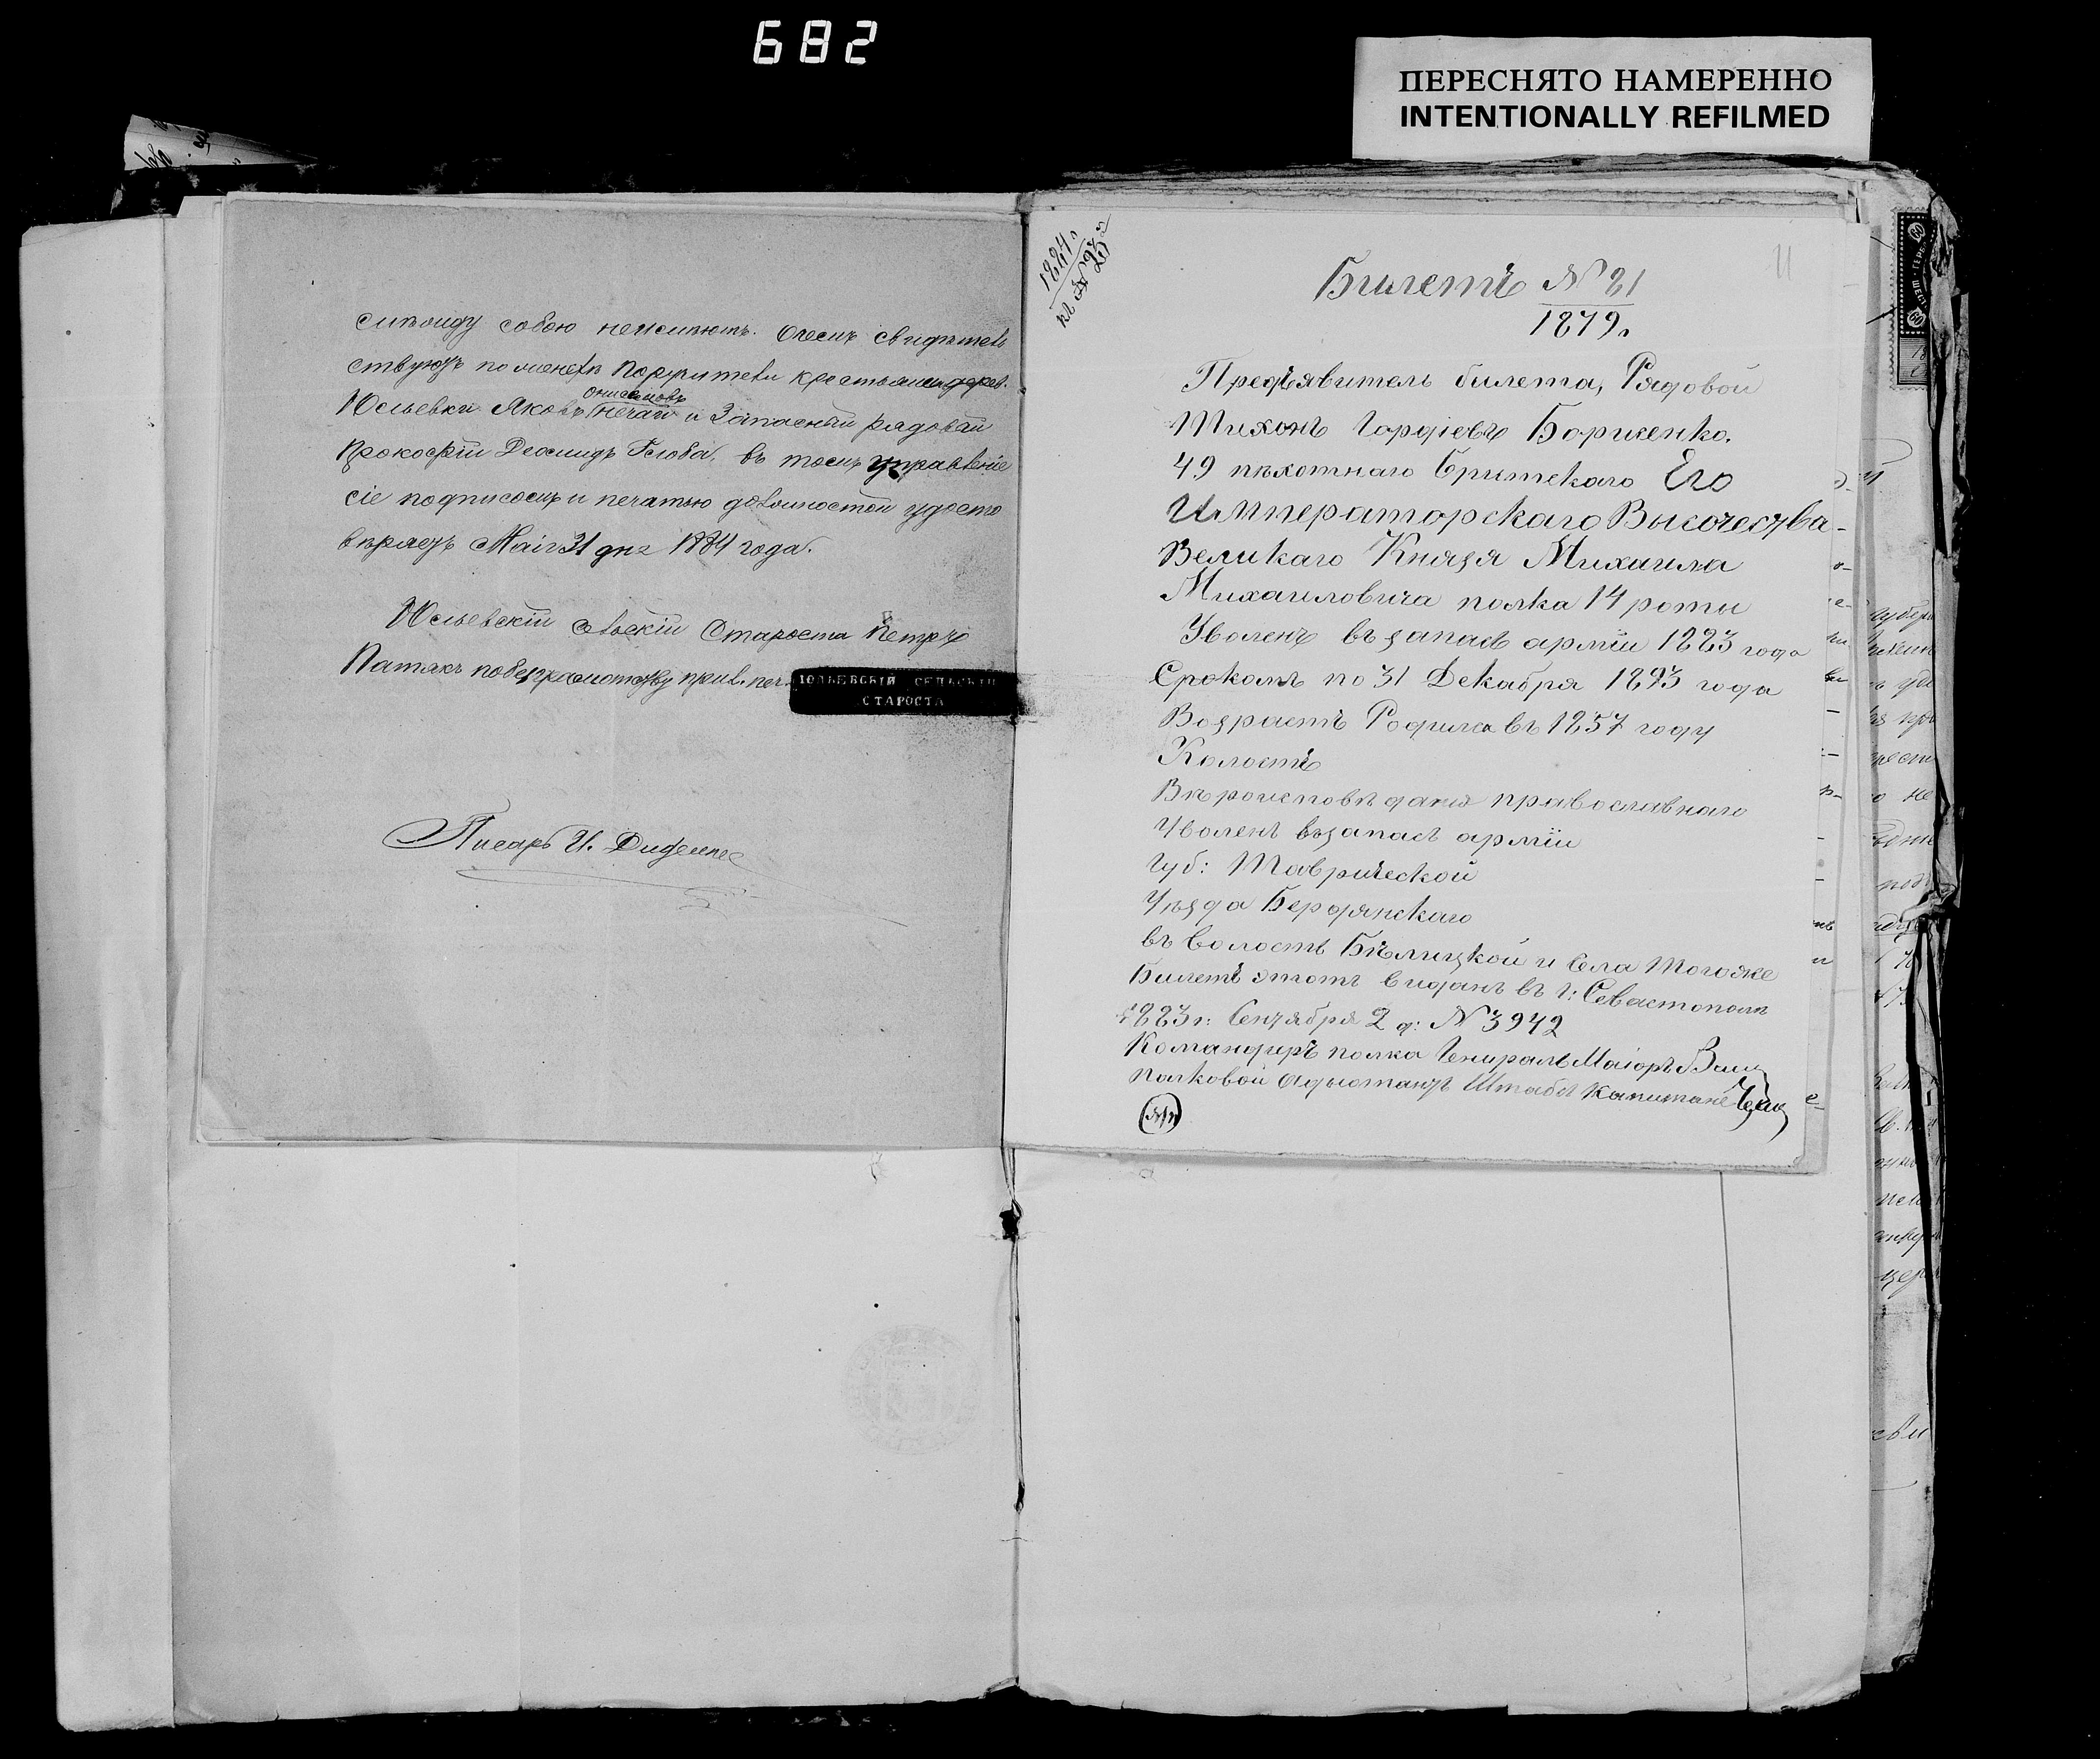 682
ПЕРЕСНЯТО НАМЕРЕННО
INTENTIONALLY REFILMED
собою неимѣютъ. О чемъ свидѣтель
ствуютъ поручители крестьянинъ дерев.
Юльевки Яковъ Нечай и Запасный рядовой
Прокофій Демидъ Глоба, въ томъ управленіе
сіе подписомъ и печатью должностной удосто
вѣряетъ Маія 31 дня 1884 года.
Юльевскій Сельскій Староста Петръ
Патякъ по безграмотству прил. печ.
ЮЛЬЕВСКІЙ СЕЛЬСКІЙ
СТАРОСТА
Писарь И. Диденко
1884 г.
11
Билетъ № 21
1879 г.
Предъявитель билета, Рядовой
Тихонъ Гордіевъ Борисенко.
49 пѣхотнаго Брестскаго Его
Императорскаго Высочества
Великаго Князя Михаила
Михаиловича полка 14 роты
Уволенъ въ запасъ арміи 1883 года
Срокомъ по 31 Декабря 1893 года
Возрастъ Родился въ 1857 году
Холостъ
Вѣроисповѣданія православнаго
Уволенъ въ запасъ арміи
Губ: Таврической
Уѣзда Бердянскаго
въ волость Бѣлицкой и Села Тогоже
Билетъ этотъ виданъ въ г: Севастополѣ
1883 г: Сентября 2 д: № 3942
Командиръ полка Генералъ Маіоръ
Полковой Адъютантъ Штабсъ Капитанъ